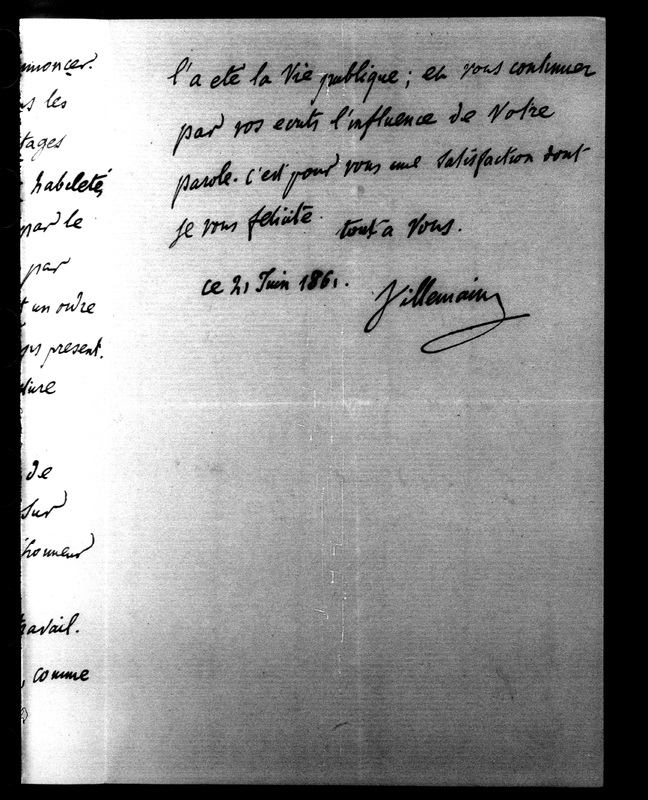 noncer.
les
tages
habileté,
par le
par
un ordre
present.
de
sur
honneur
travail.
, comme
l'a eté la Vie publique ; et vous continuer
par vos ecrits l'influence de Votre
parole. C'est pour vous une satisfaction dont
je vous felicite. tout a Vous.
ce 21 Juin 1861.
Villemain